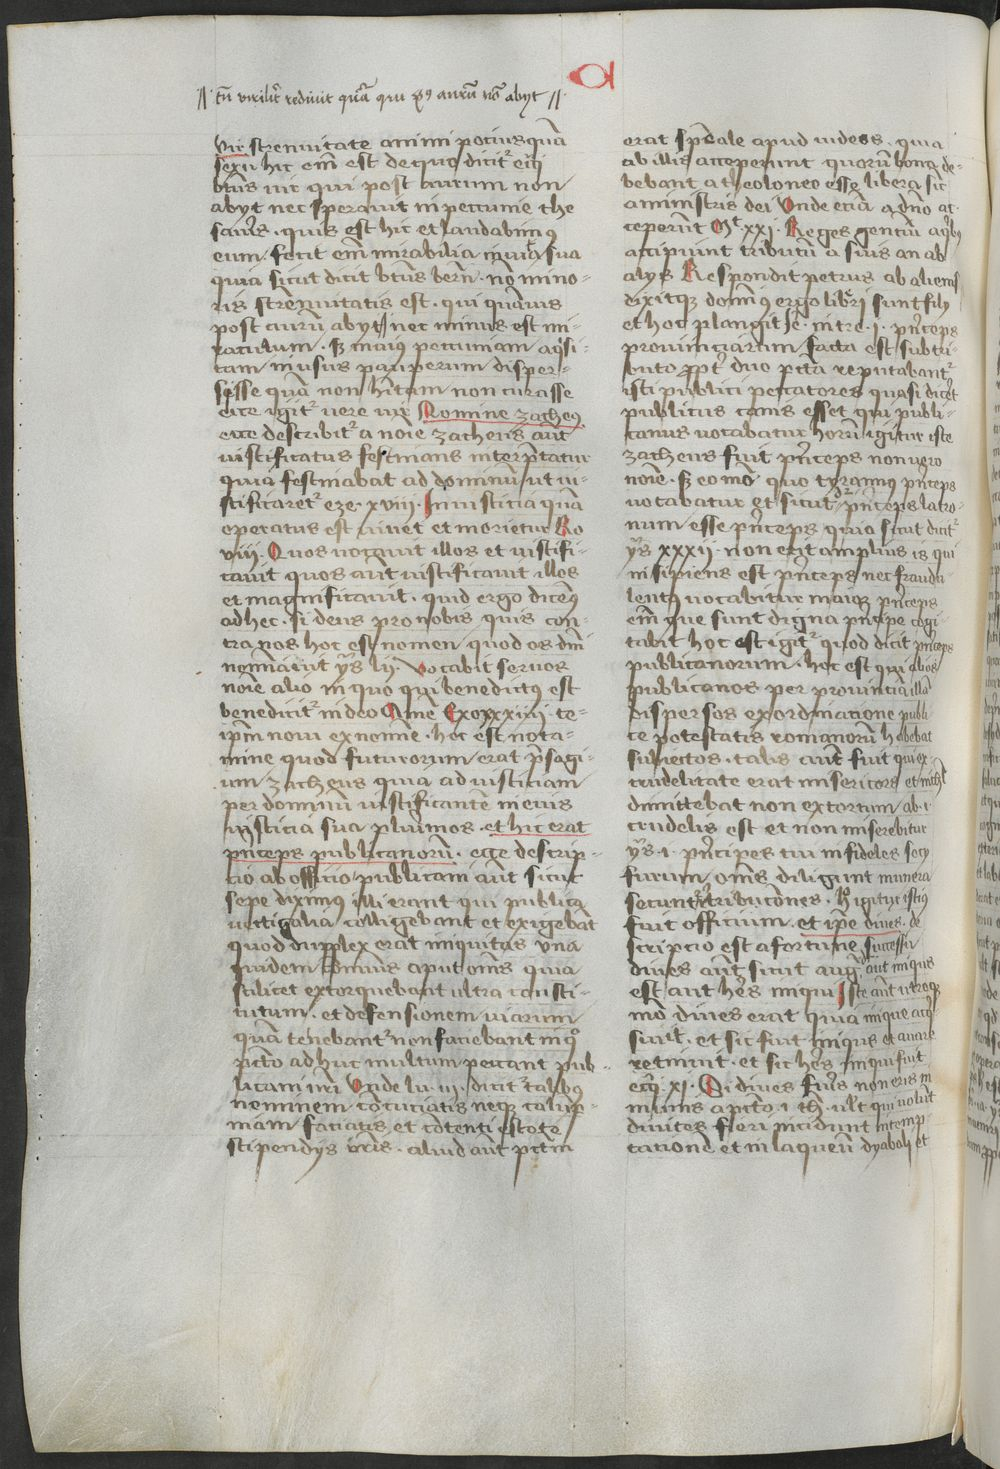 // tn̄ virilit̾ rediuit qͣm̄ qui p9 aurū nō abyt //
Vir strenuitate animi pocius quā
sexu hic em̄ est de quo dicit᷑ eccͥ
btūs vir qui post aurum non
abyt nec sperauit in peccunie the
sauris . quis est hic et laudabimꝰ
eum . fecit em̄ mirabilia in vita sua
quia sicut dicit btūs bern̄ . nō mino-
ris strenuitatis est . qui quāuis
post aurū abyt / nec minus est mi-
raculum . sꝫ maius peccuniam aq̇si-
tam in usus pauperum disper-
sisse quā non hītam non curasse
ecce igit᷑ vere vir Nomine zacheus
ecce describit᷑ a noīe zacheus aūt
iustificatus festinans interp̄tatur
quia festinabat ad dominū ut iu-
stificaret᷑ eze . xviii . In iusticia quā
operatus est viuet et morietur Ro
viii . Quos vocauit illos et iustifi-
cauit quos aūt iustificauit illos
et magnificauit . quid ergo dicemꝰ
ad hec . si deus pro nobis quis con-
tra nos hoc est nomen quod os dn̄i
nomīauit ys̄ lij . Vocabit seruos
noīe alio in quo qui benedictꝰ est
benedicit᷑ in deo Amē Exo xxxiiii . te-
ip̄m noui ex nomīe . hoc est nota-
mine quod futurorum erat p̄sagi-
um zacheus quia ad iusticiam
per dominū iustificantē in eius
iusticia sua plurimos . et hic erat
pn̄ceps publicanorū . ecce descrip-
cio ab officio / publicani aūt sicut
sepe diximus illi erant qui publica
vectigalia colligebant et exigebāt
quod dupplex erat iniquitas vna
quidem comūis aput om̄s quia
scilicet extorquebant ultra consti-
tutum . et defensionem viarum
quā tenebant᷑ non faciebant in qͦ
pctō adhuc multum peccant pub-
licani nr̄i Vnde lu . iii . dicit talibꝰ
neminem cōcuciatis neqꝫ calup̄-
niam faciatis et cōtenti estote
stipendys vr̄is . aliud aūt pctm̄
erat spēale apud iudeos . quia
ab illis acceperunt quorū bona de-
bebant a theoloneo esse libera sic
a ministris dei Vnde eciā a dn̄o ac-
ceperūt Mt xxij . Reges gentiū a q̇bꝰ
accipiunt tributū a suis an ab
alys Respondit petrus ab alienis
dixitqꝫ dominꝰ ergo liberi sunt filij
et hoc plangit Ie . in tre . i . pn̄ceps
prouinciarum facta est sub tri-
buto ꝓpt̾ duo pctā reputabant᷑
isti publici peccatores quasi dicet᷑
publicus canis esset qui publi-
canus vocabatur horū igitur iste
zacheus fuit pn̄ceps non vero
noīe . sꝫ eo mō quo tyrannus pn̄ceps
vocabatur et sicut dr᷑ pn̄ceps latro-
num esse pn̄ceps quia sicut dicit᷑
ys̄ xxxii . non erit amplius is qui
insipiens est pn̄ceps nec frauda-
lentꝰ vocabitur maior pn̄ceps
em̄ que sunt digna pn̄cipe cogi-
tabit hoc est igit᷑ quod dicit pn̄ceps
publicanorum . hoc est qui alios
publicanos per prouinciā illā
dispersos ex ordinacione publi-
ce potestatis romanorū habebat
subiectos . talis aūt fuit qui ex
crudelitate erat misericors et nichil
dimittebat non extortum ab .i.
crudelis est et non miserebitur
ys̄ . i . pn̄cipes tui infideles socy
furum om̄s diligunt munera
secunt᷑ retribucōnes . h̊ igitur istius
fuit officium . et ip̄e diues . de
scripcio est a fortune successu
diues aūt sicut aug̾ aut iniqus
est aut hēs iniqui Iste aūt utroqꝫ
mō diues erat quia inique acq̇-
siuit . et sic fuit iniqus et auare
retinuit . et sic hēs iniqui fuit
ecc̄i xi . Si diues fuis̄ non eris in-
munis a pctō i th̄ . ult qui volūt
diuites fieri incidunt in temp-
tationē et in laqueū dyaboli et